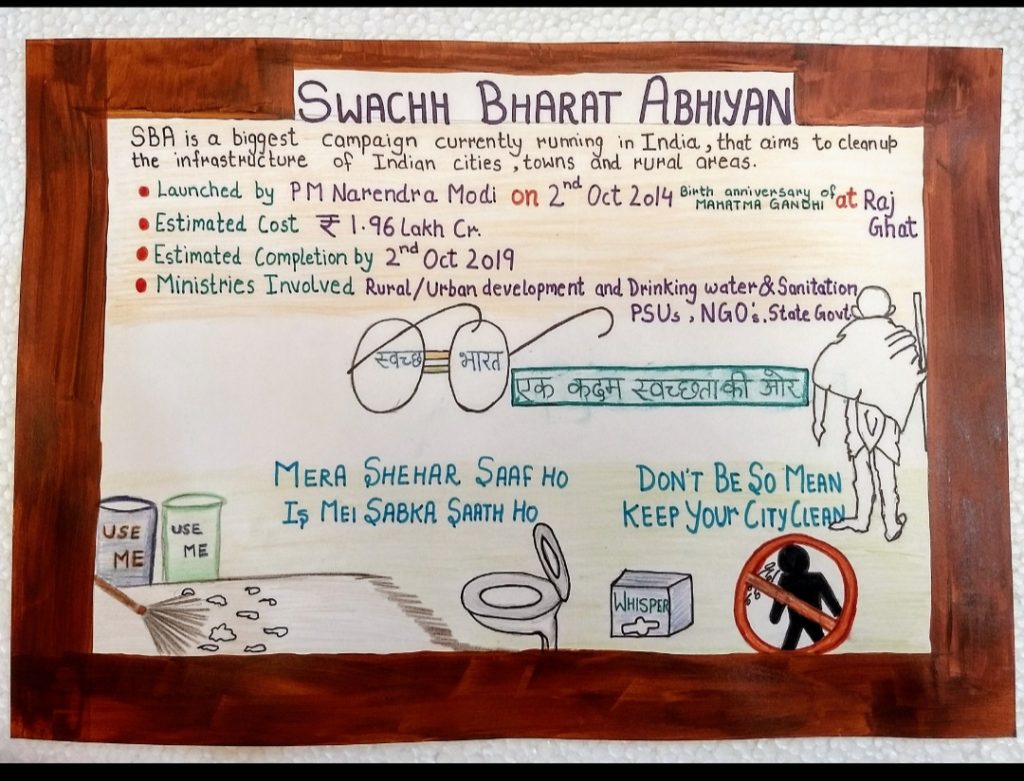 SWACHH BHARAT ABHIYAN
SBA is a biggest campaign currently running in India, that aims to cleanup
the infrastructure of Indian cities, towns and rural areas.
• Launched by PM Narendra Modi on 2nd Oct 2014 Birth anniversary of MAHATMA GANDHI at Raj Ghat
• Estimated Cost ₹ 1.96 Lakh Cr.
• Estimated Completion by 2nd Oct 2019
• Ministries Involved Rural/Urban development and Drinking water & Sanitation
PSUs, NGO's. State Govts
स्वच्छ भारत
एक कदम स्वच्छता की ओर
MERA SHEHAR SAAF HO
IS MEI SABKA SAATH HO
DON'T BE SO MEAN
KEEP YOUR CITY CLEAN
USE
ME
USE
ME
WHISPER